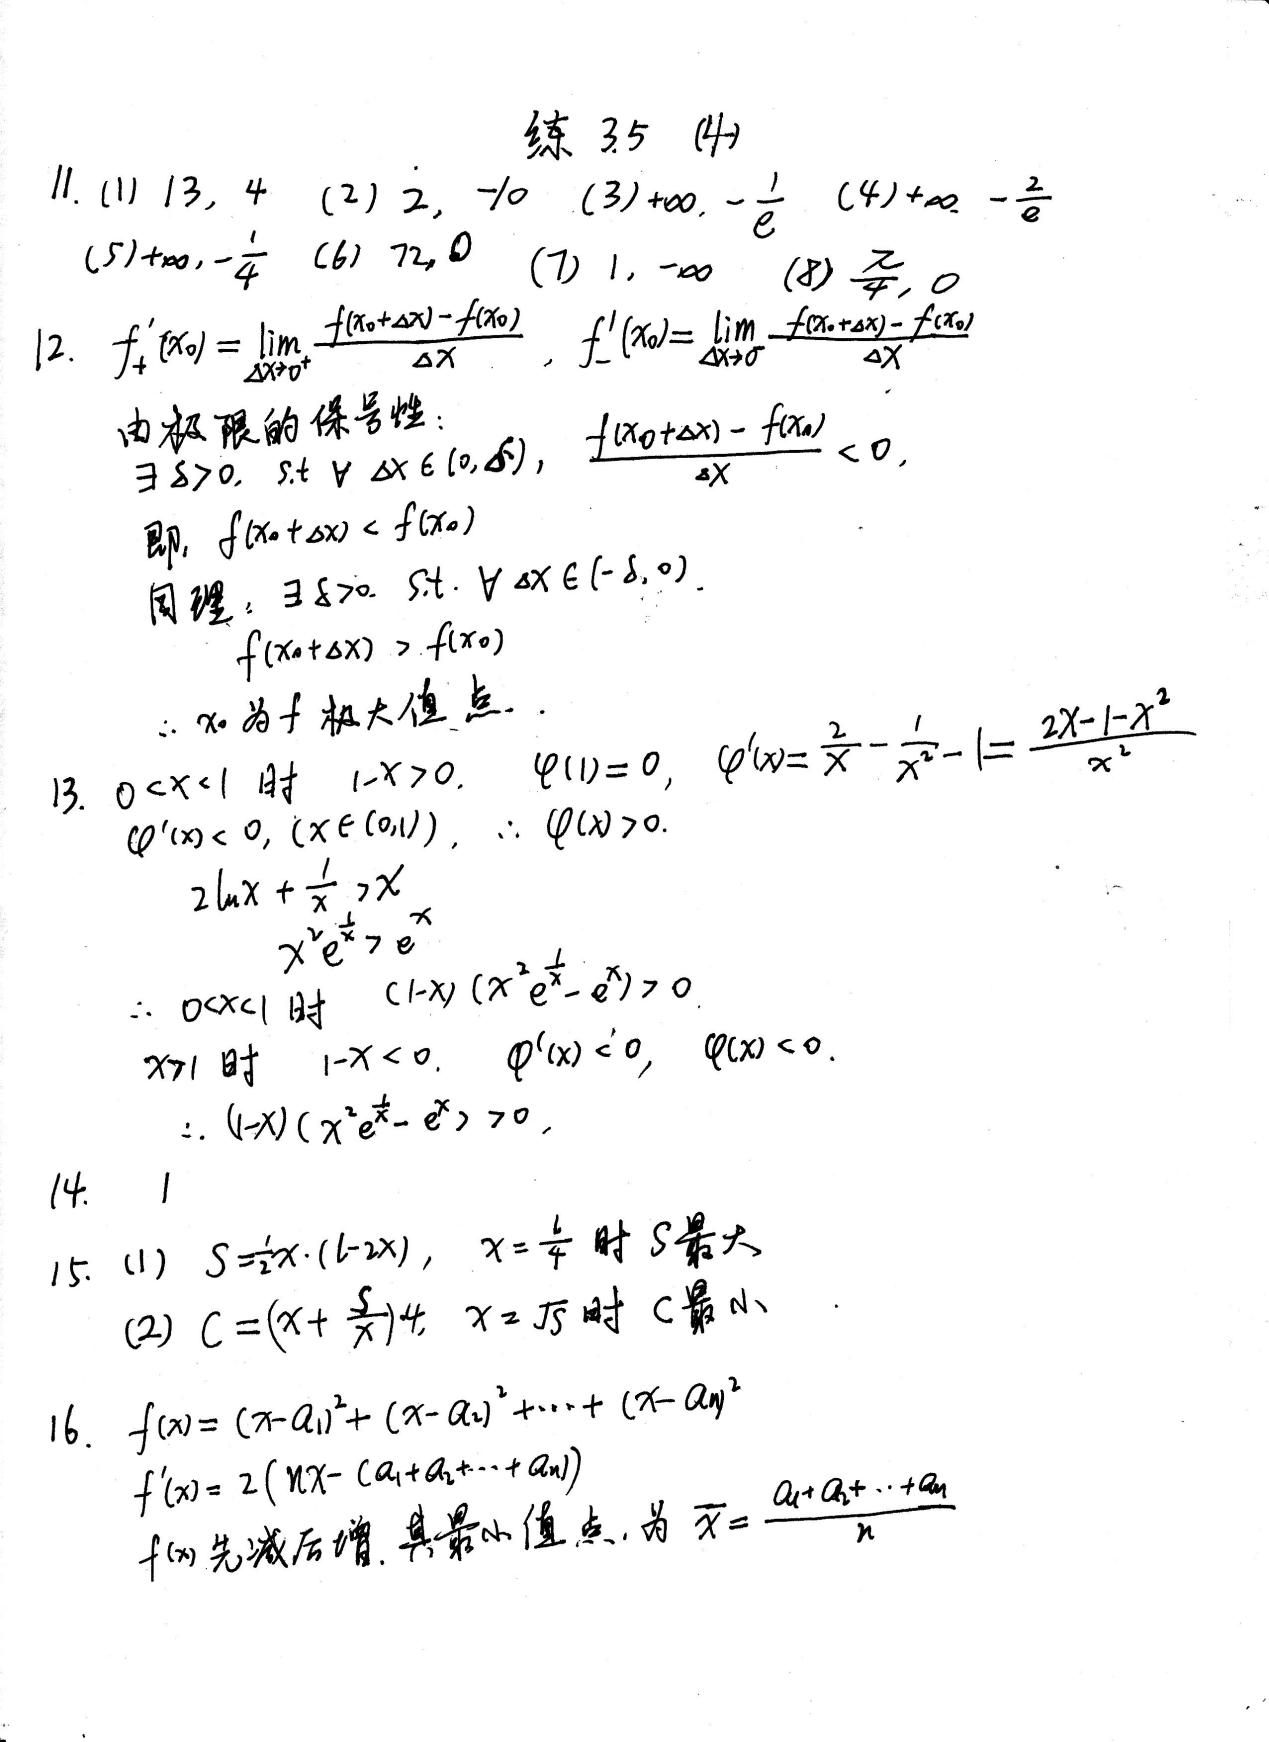 练 3.5 (4)
11. (1) 13, 4 (2) 2, -10 (3) +∞, -1/e (4) +∞, -2/e
(5) +∞, -1/4 (6) 72, 0 (7) 1, -∞ (8) π/4, 0
12. f₊'(x₀) = lim_{Δx→0⁺} (f(x₀+Δx)-f(x₀))/Δx, f₋'(x₀) = lim_{Δx→0⁻} (f(x₀+Δx)-f(x₀))/Δx
由极限的保号性:
∃ δ>0, s.t ∀ Δx ∈ (0, δ), (f(x₀+Δx) - f(x₀))/Δx < 0,
即, f(x₀+Δx) < f(x₀)
同理, ∃ δ>0. s.t. ∀ Δx ∈ (-δ, 0).
f(x₀+Δx) > f(x₀)
∴ x₀ 为 f 极大值点.
13. 0<x<1 时 1-x>0. φ(1)=0, φ'(x) = 2/x - 1/x² - 1 = (2x-1-x²)/x²
φ'(x)<0, (x∈(0,1)), ∴ φ(x)>0.
2lnx + 1/x > x
x²e^{1/x} > e^x
∴ 0<x<1 时 (1-x)(x²e^{1/x} - e^x) > 0
x>1 时 1-x<0. φ'(x)<0, φ(x)<0.
∴ (1-x)(x²e^{1/x} - e^x) > 0,
14. 1
15. (1) S = 1/2 x·(l-2x), x = l/4 时 S最大
(2) C = (x + S/x)4, x = √S 时 C最小
16. f(x) = (x-a₁)² + (x-a₂)² + ⋯ + (x-aₙ)²
f'(x) = 2(nx-(a₁+a₂+⋯+aₙ))
f(x) 先减后增, 其最小值点, 为 x̄ = (a₁+a₂+⋯+aₙ)/n